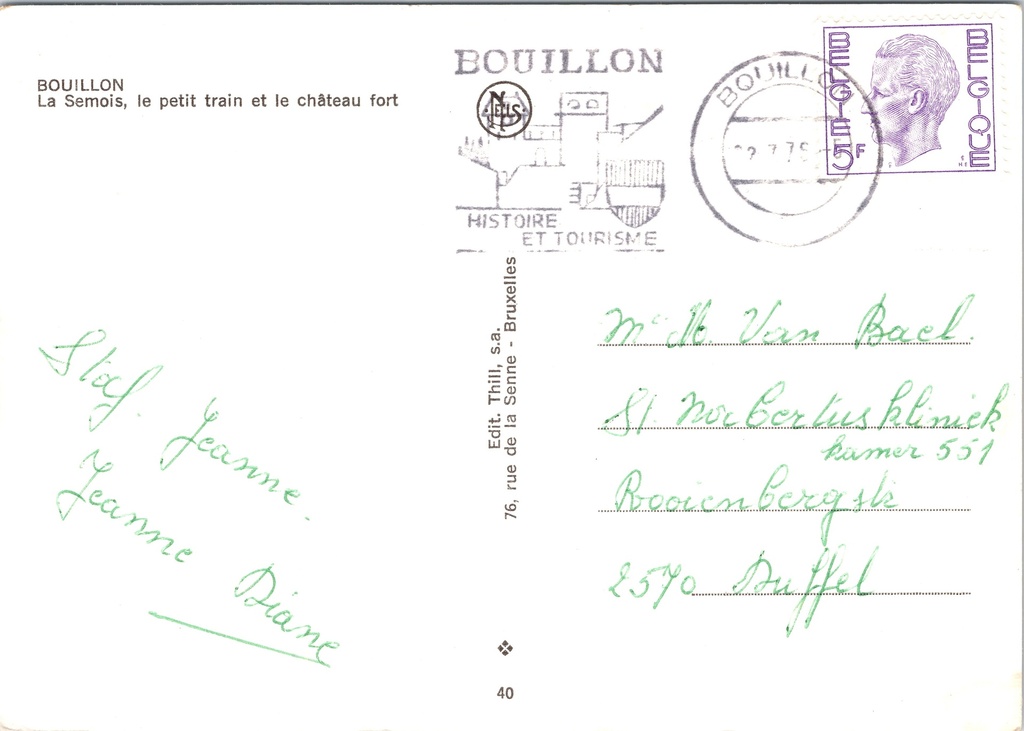 BOUILLON
La Semois, le petit train et le château fort
BOUILLON
NELS
HISTOIRE
ET TOURISME
BOUILLON
BELGIE 5F
BELGIQUE
Edit. Thill, s.a.
76, rue de la Senne - Bruxelles
Staf. Jeanne.
Jeanne Diane
Van Bael.
St Norbertuskliniek
kamer 551
Rooienbergstr
2570 Duffel
40